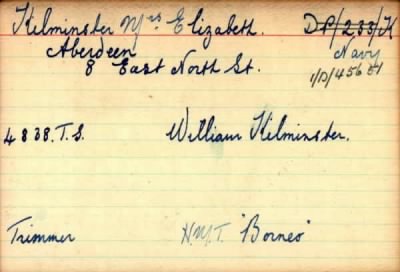 Kilminster Mrs Elizabeth. DP/233/K
Aberdeen Navy
8 East North St. 1/D/45651
4838.T.S. William Kilminster.
Trimmer H.M.T. "Borneo"